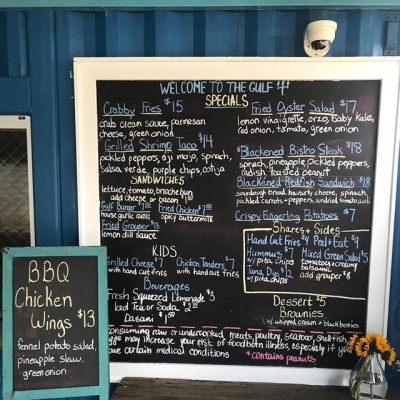 WELCOME TO THE GULF
SPECIALS
Crabby Fries $15
crab clean sauce, parmesan
cheese, green onion
Grilled Shrimp Taco $14
pickled peppers, oji mojo, spinach,
Salsa verde, purple chips, cotija
SANDWICHES
lettuce, tomato,
add cheese or bacon
Gulf Burger
house garlic aioli
Fried Chicken
spicy buttermilk
Fried Grouper $13
lemon dill sauce
KIDS
Grilled Cheese $7
with hand cut fries
Chicken Tenders $7
with hand cut fries
Beverages
Fresh Squeezed Lemonade $3
Iced Tea or Soda
Dasani
Fried Oyster Salad $17
lemon vinaigrette, orzo, baby kale,
red onion, tomato, green onion
*Blackened Bistro Steak $18
spinach, pineapple, pickled peppers,
radish, toasted peanut
Blackened Redfish Sandwich $18
sourdough bread, havarti cheese, spinach,
pickled carrots-peppers,
Crispy Fingerling Potatoes $7
Shares + Sides
Hand Cut Fries $4 Peel + Eat $9
Hummus $7
w/ pita chips
Tuna Dip
w/ pita chips
Mixed Green Salad $5
Tomatoes + creamy
balsamic
add grouper $8
Dessert $5
Brownies
w/ whipped cream + blackberries
consuming raw or undercooked meats, poultry, seafood, shellfish,
eggs may increase your risk of foodborn illness, especially if you
have certain medical conditions *contains peanuts
BBQ
Chicken
Wings $13
fennel potato salad,
pineapple slaw,
green onion